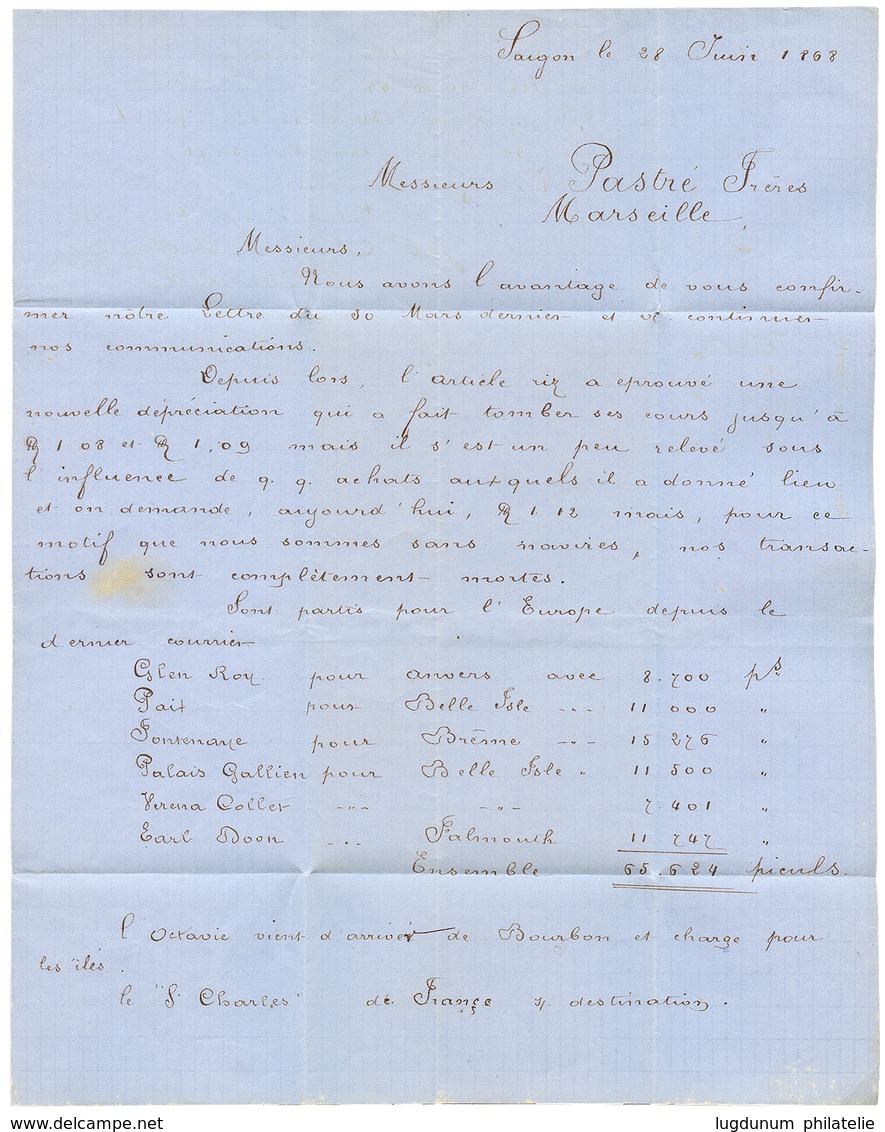 Saigon le 28 Juin 1868
Messieurs Pastré Frères
Marseille,
Messieurs,
Nous avons l'avantage de vous confir-
mer nôtre Lettre du 30 Mars dernier et de continuer
nos communications.
Depuis lors, l'article riz a eprouvé une
nouvelle dépréciation qui a fait tomber ses cours jusqu'à
1 08 et 1,09 mais il s'est un peu relevé sous
l'influence de q. q. achats auxquels il a donné lieu
et on demande, aujourd'hui, 1 12 mais, pour ce
motif que nous sommes sans navires, nos transac-
tions sont complètement mortes.
Sont partis pour l'Europe depuis le
dernier courrier
Glen Roy pour anvers avec 8.700 pls
Pait pour Belle Isle -"- 11 000 "
Fontenaye pour Brême -"- 15 276 "
Palais Gallien pour Belle Isle " 11 500 "
Verena Collet -"- -"- 7.401 "
Earl Doon -"- Falmouth 11 747 "
Ensemble 65.624 piculs.
l'Octavie vient d'arriver de Bourbon et charge pour
les îles.
le "St Charles" de France s/ destination.
www.delcampe.net
lugdunum philatelie